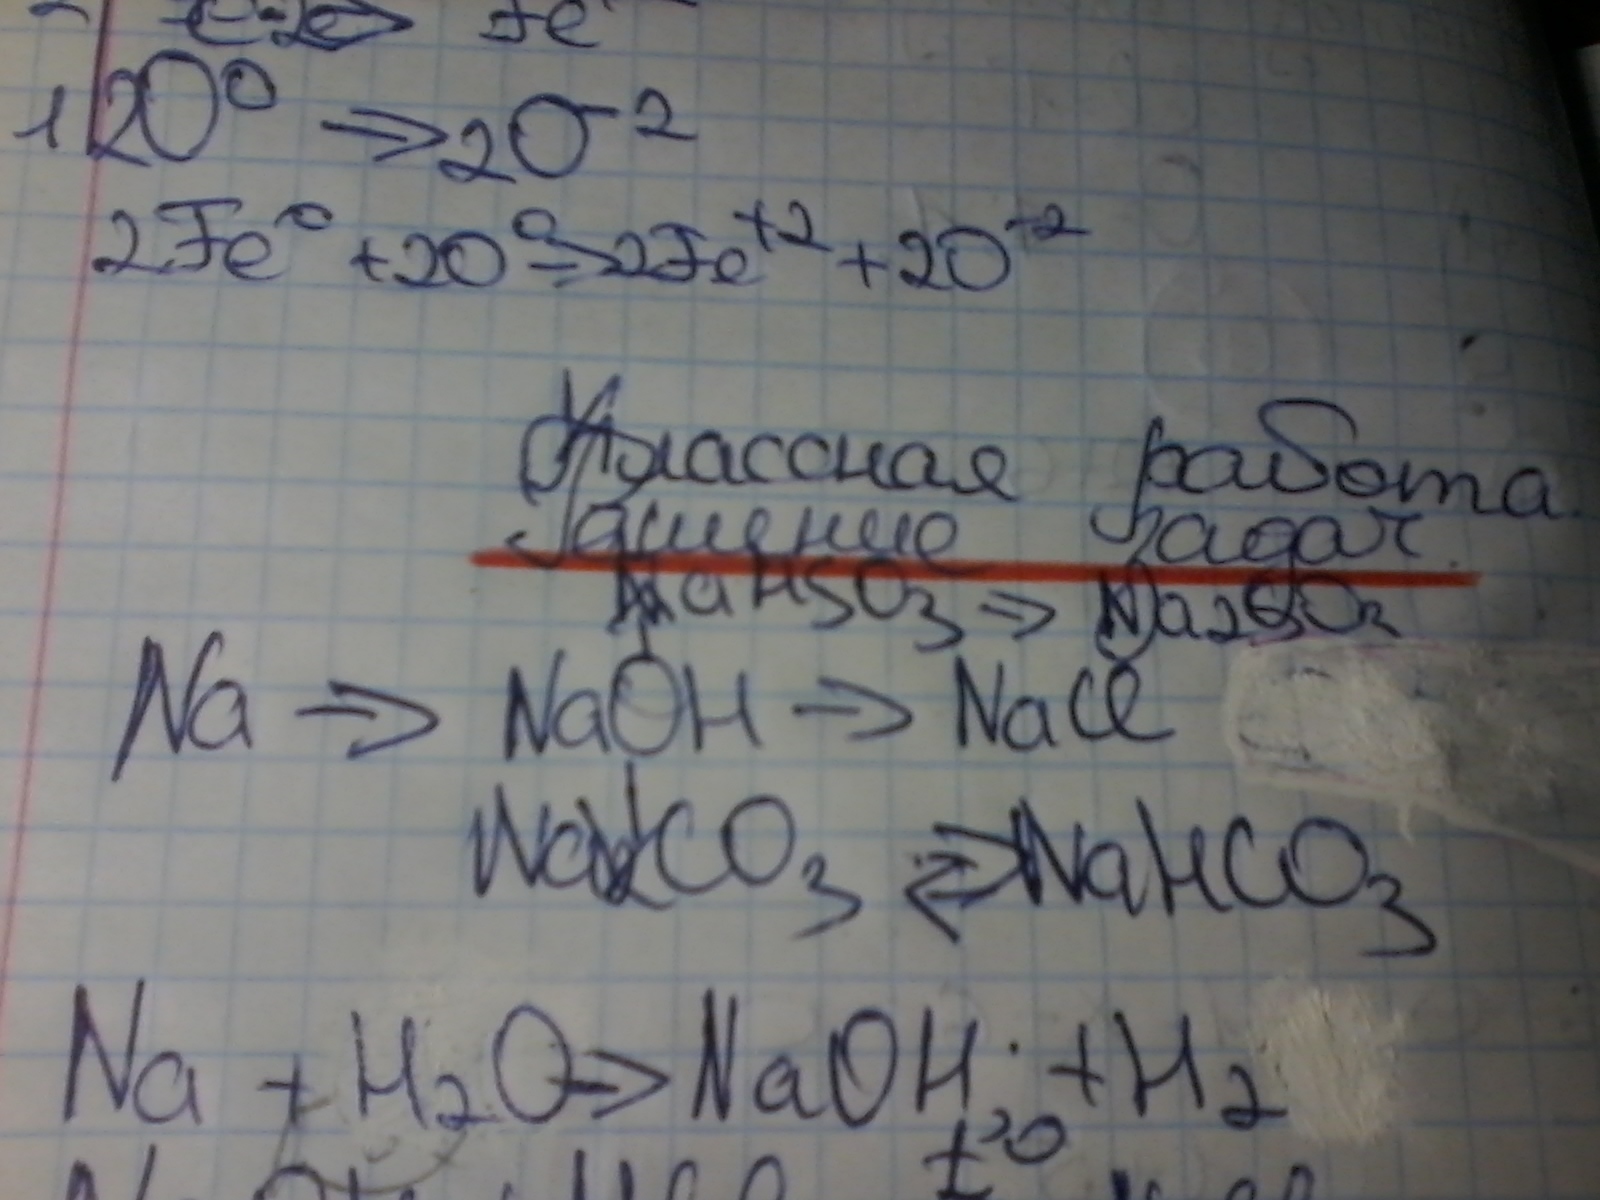 Fe
1 2O⁰ ⇒ 2O⁻²
2Fe⁰ + 2O⁰ ⇒ 2Fe⁺² + 2O⁻²
Классная работа
Решение задач.
NaHSO3 ⇒ Na2SO3
Na ⇒ NaOH ⇒ NaCl
Na2CO3 ⇄ NaHCO3
Na + H2O ⇒ NaOH + H2